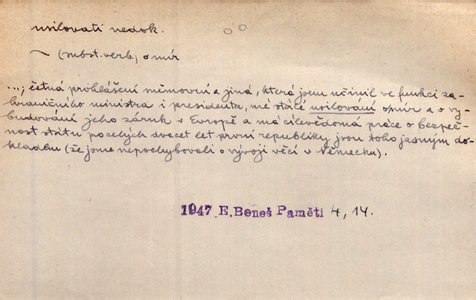 usilovati nedok.
~ (subst. verb.) o mír
...; četná prohlášení sněmovní a jiná, která jsem učinil ve funkci za-
hraničního ministra i presidenta, mé stálé usilování o mír a o vy-
budování jeho záruk v Evropě a má cílevědomá práce o bezpeč-
nost státu po celých dvacet let první republiky jsou toho jasným do-
kladem (že jsme nepochybovali o vývoji věcí v Německu).
1947 E. Beneš Paměti 4, 14.